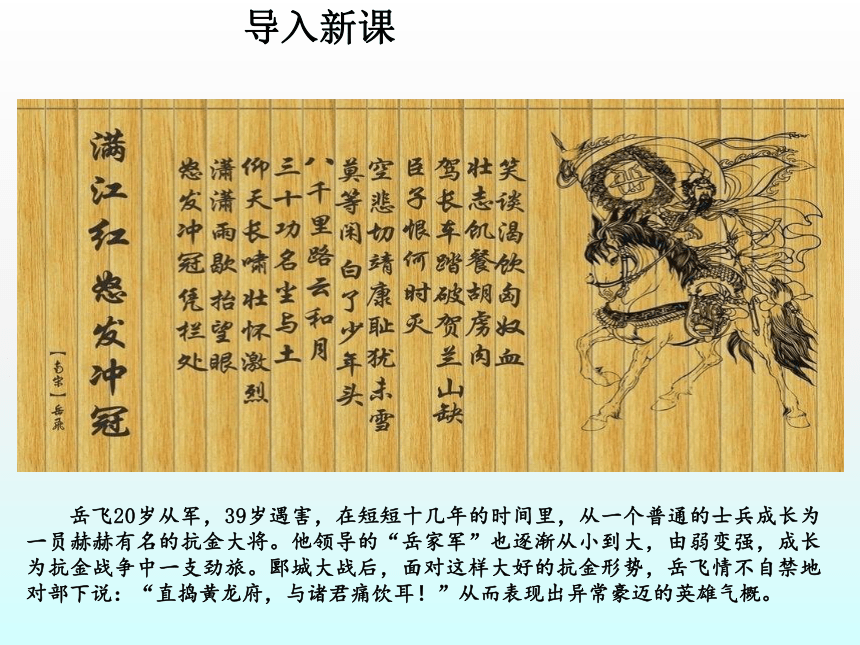 导入新课
满江红 怒发冲冠
【南宋】岳飞
怒发冲冠 凭栏处
潇潇雨歇 抬望眼
仰天长啸壮怀激烈
三十功名尘与土
八千里路云和月
莫等闲 白了少年头
空悲切靖康耻犹未雪
臣子恨何时灭
驾长车踏破贺兰山缺
壮志饥餐胡虏肉
笑谈渴饮匈奴血
岳飞20岁从军，39岁遇害，在短短十几年的时间里，从一个普通的士兵成长为
一员赫赫有名的抗金大将。他领导的“岳家军”也逐渐从小到大，由弱变强，成长
为抗金战争中一支劲旅。郾城大战后，面对这样大好的抗金形势，岳飞情不自禁地
对部下说：“直捣黄龙府，与诸君痛饮耳！”从而表现出异常豪迈的英雄气概。